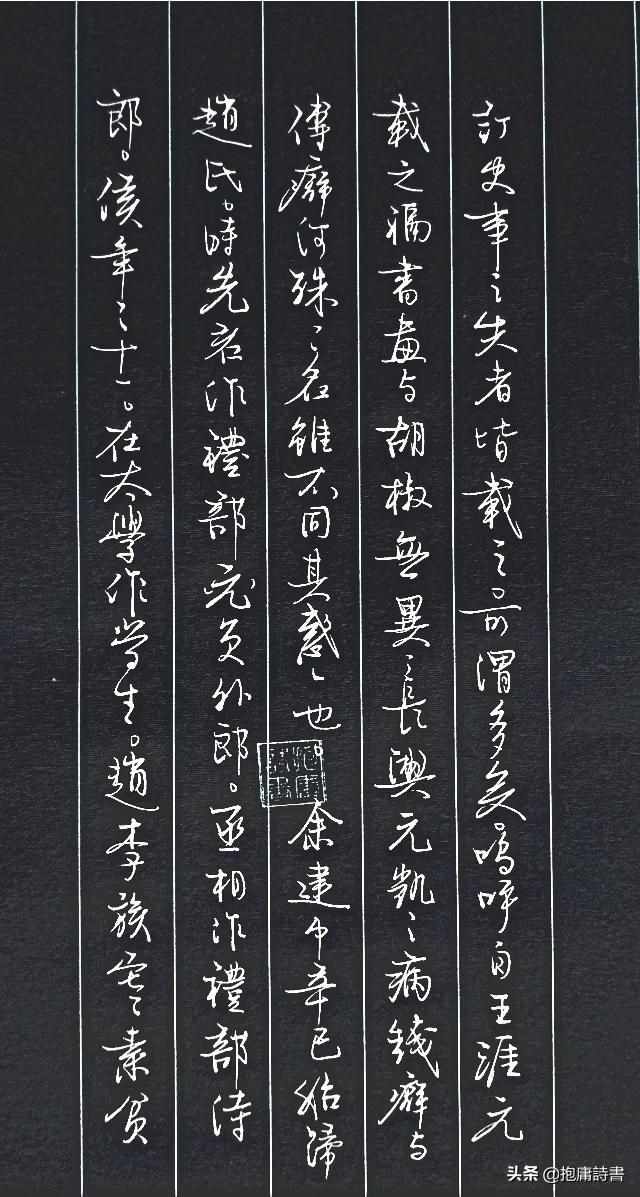 訂史事之失者皆載之。可謂多矣。嗚呼自王涯元
載之禍書畫与胡椒無異。長輿元凱之病錢癖与
傳癖何殊。名雖不同其惑一也。余建中辛巳始歸
趙氏。時先君作禮部員外郎。丞相作禮部侍
郎。侯年二十一。在太學作学生。趙李族寒素貧
头条 @抱庸詩書